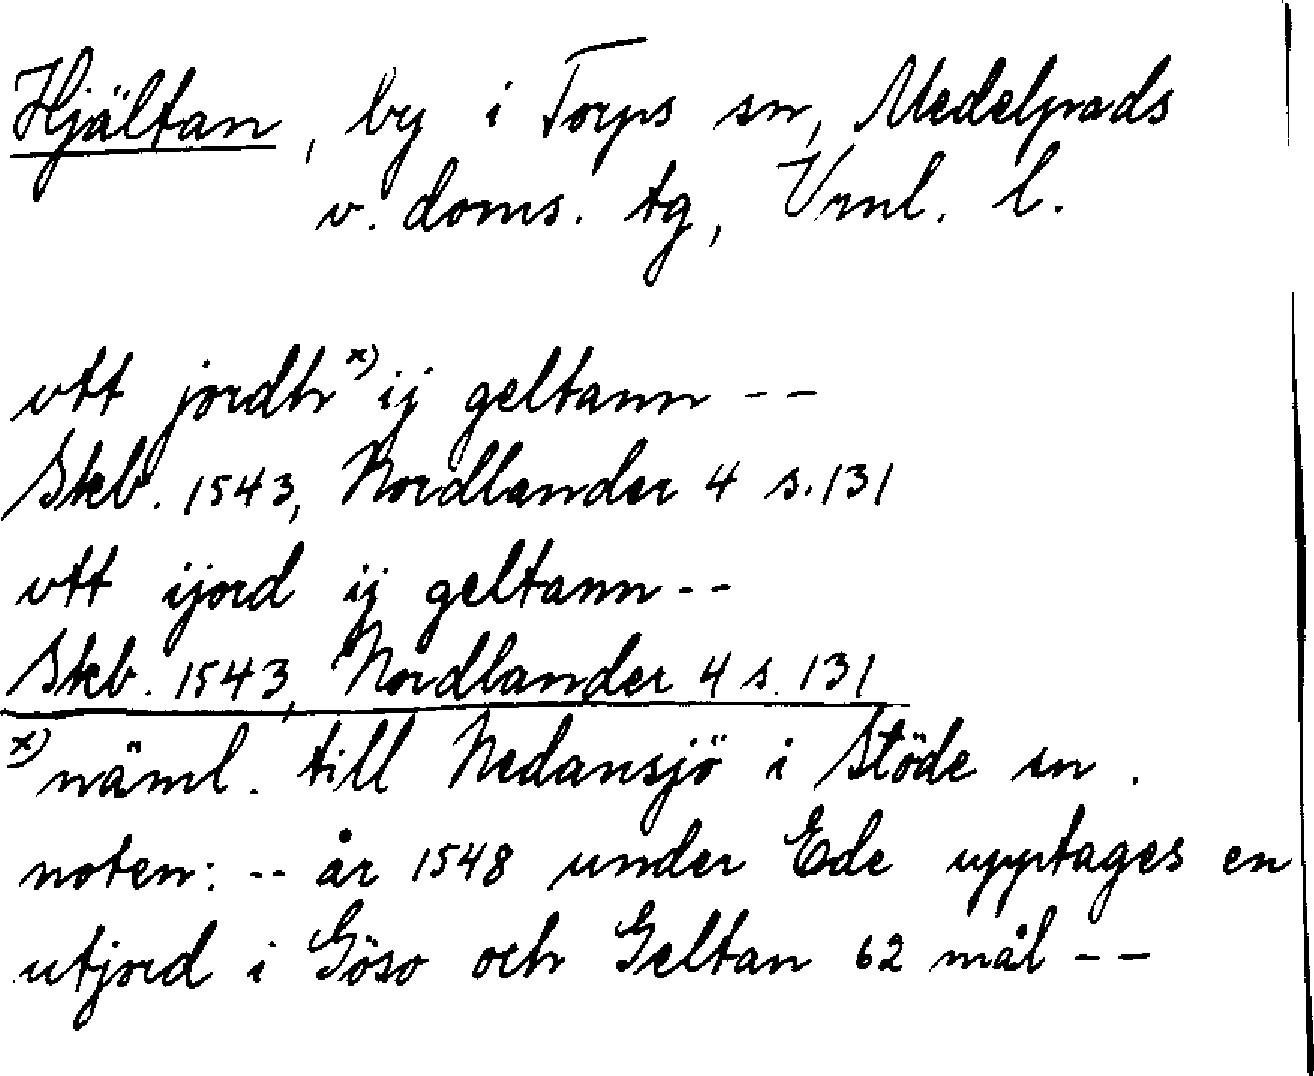 Hjältan, by i Torps sn, Medelpads
v. doms. tg, Vrnl. l.
vtt jordh x) ij geltann --
Skb. 1543, Nordlander 4 s. 131
vtt ijord ij geltann --
Skb. 1543, Nordlander 4 s. 131
x) näml. till Nedansjö i Stöde sn.
noten: -- år 1548 under Ede upptages en
utjord i Göso och Geltan 62 mål --